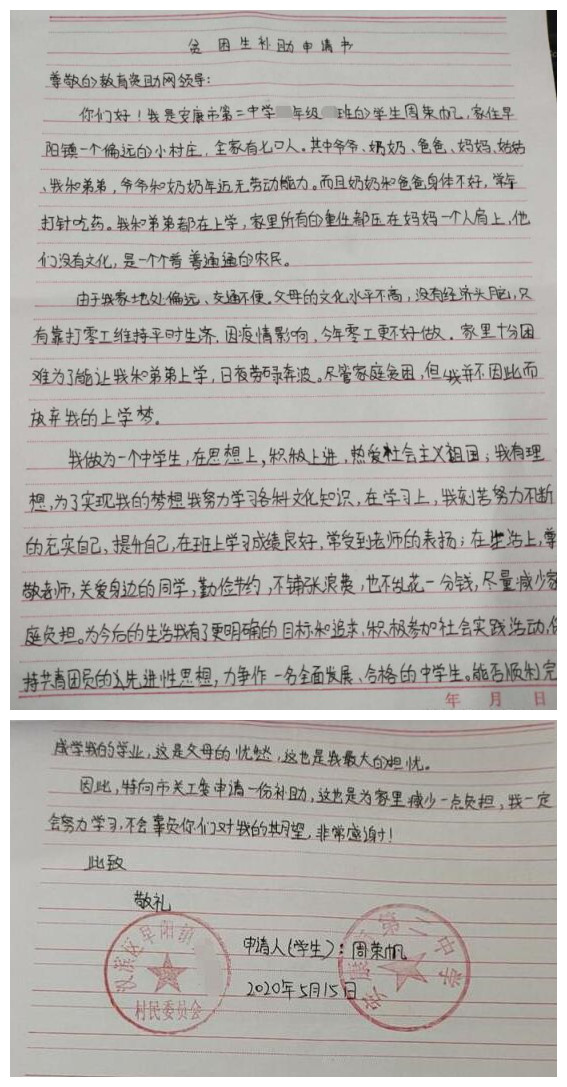 贫困生补助申请书
尊敬的教育资助网领导：
你们好！我是安康市第二中学 年级 班的学生周荣帆，家住早
阳镇一个偏远的小村庄，全家有七口人。其中爷爷、奶奶、爸爸、妈妈、姑姑
、我和弟弟，爷爷和奶奶年近无劳动能力。而且奶奶和爸爸身体不好，常年
打针吃药。我和弟弟都在上学，家里所有的重任都压在妈妈一个人肩上，他
们没有文化，是一个个普普通通的农民。
由于我家地处偏远、交通不便。父母的文化水平不高，没有经济头脑，只
有靠打零工维持平时生济，因疫情影响，今年零工更不好做。家里十分困
难为了能让我和弟弟上学，日夜劳碌奔波。尽管家庭贫困，但我并不因此而
放弃我的上学梦。
我做为一个中学生，在思想上，积极上进，热爱社会主义祖国；我有理
想，为了实现我的梦想我努力学习各科文化知识，在学习上，我刻苦努力不断
的充实自己，提升自己，在班上学习成绩良好，常受到老师的表扬；在生活上，尊
敬老师，关爱身边的同学，勤俭节约，不铺张浪费，也不乱花一分钱，尽量减少家
庭负担。为今后的生活我有了更明确的目标和追求，积极参加社会实践活动，保
持共青团员的先进性思想，力争作一名全面发展、合格的中学生。能否顺利完
年 月 日
成学我的学业，这是父母的忧愁，这也是我最大的担忧。
因此，特向市关工委申请一份补助，这也是为家里减少一点负担，我一定
会努力学习，不会辜负你们对我的期望，非常感谢！
此致
敬礼
申请人(学生)：周荣帆
2020年5月15日
汉滨区早阳镇
村民委员会
安康市第二中学